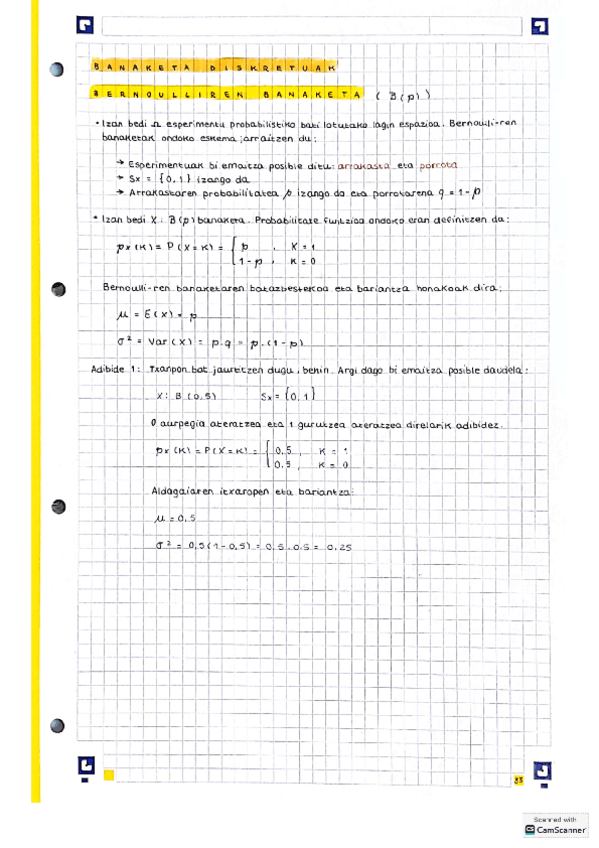 BANAKETA DISKRETUAK
BERNOULLIREN BANAKETA (B(p))
• Izan bedi Ω esperimentu probabilistiko bati lotutako lagin espazioa. Bernoulli-ren
banaketak ondoko eskema jarraitzen du:
→ Esperimentuak bi emaitza posible ditu: arrakasta eta porrota
→ Sx = {0,1} izango da
→ Arrakastaren probabilitatea p izango da eta porrotarena q = 1-p
• Izan bedi X: B(p) banaketa. Probabilitate funtzioa ondoko eran definitzen da:
px(k) = P(X=k) = { p , K = 1
1-p , K = 0
Bernoulli-ren banaketaren batazbestekoa eta bariantza honakoak dira:
μ = E(X) = p
σ² = Var(X) = p.q = p.(1-p)
Adibide 1: Txanpon bat jaurtitzen dugu, behin. Argi dago bi emaitza posible daudela:
X: B(0,5) Sx = {0,1}
0 aurpegia ateratzea eta 1 gurutzea ateratzea direlarik adibidez.
px(K) = P(X=K) = { 0,5 , K = 1
0,5 , K = 0
Aldagaiaren itxaropen eta bariantza:
μ = 0,5
σ² = 0,5(1-0,5) = 0,5.0,5 = 0,25
Scanned with
CamScanner